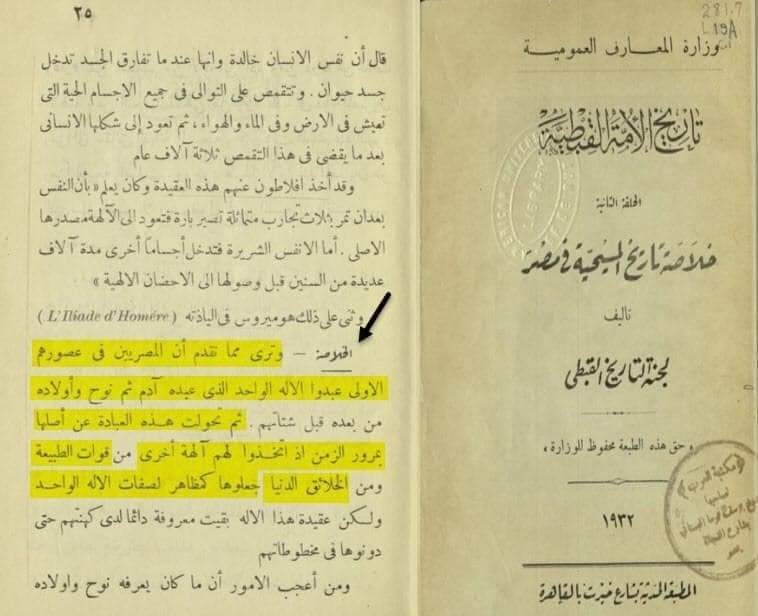 ٢٥
قال أن نفس الانسان خالدة وانها عند ما تفارق الجسد تدخل
جسد حيوان . وتتقمص على التوالى فى جميع الاجسام الحية التى
تعيش فى الارض وفى الماء والهواء، ثم تعود إلى شكلها الانسانى
بعد ما يقضى فى هذا التقمص ثلاثة آلاف عام
وقد أخذ افلاطون عنهم هذه العقيدة وكان يعلم « بأن النفس
بعد ان تمر بثلاث تجارب متماثلة تصير بارة فتعود الى الآلهة مصدرها
الاصلى . أما الانفس الشريرة فتدخل أجساماً أخرى مدة آلاف
عديدة من السنين قبل وصولها الى الاحضان الالهية »
وثنى على ذلك هوميروس فى الياذته ( L'Iliade d'Homére )
الخلاصة – وترى مما تقدم أن المصريين فى عصورهم
الاولى عبدوا الاله الواحد الذى عبده آدم ثم نوح وأولاده
من بعده قبل شتاتهم . ثم تحولت هذه العبادة عن أصلها
بمرور الزمن اذ اتخذوا لهم آلهة أخرى من قوات الطبيعة
ومن الخلائق الدنيا جعلوها كمظاهر لصفات الاله الواحد
ولكن عقيدة هذا الاله بقيت معروفة دائما لدى كهنتهم حتى
دونوها فى مخطوطاتهم
ومن أعجب الامور أن ما كان يعرفه نوح واولاده
281.7
وزارة المعارف العمومية
تاريخ الأمة القبطية
الحلقة الثانية
خلاصة تاريخ المسيحية فى مصر
تأليف
لجنة التاريخ القبطى
« وحق هذه الطبعة محفوظ للوزارة »
١٩٣٢
المطبعة الحديثة بشارع خيرت بالقاهرة